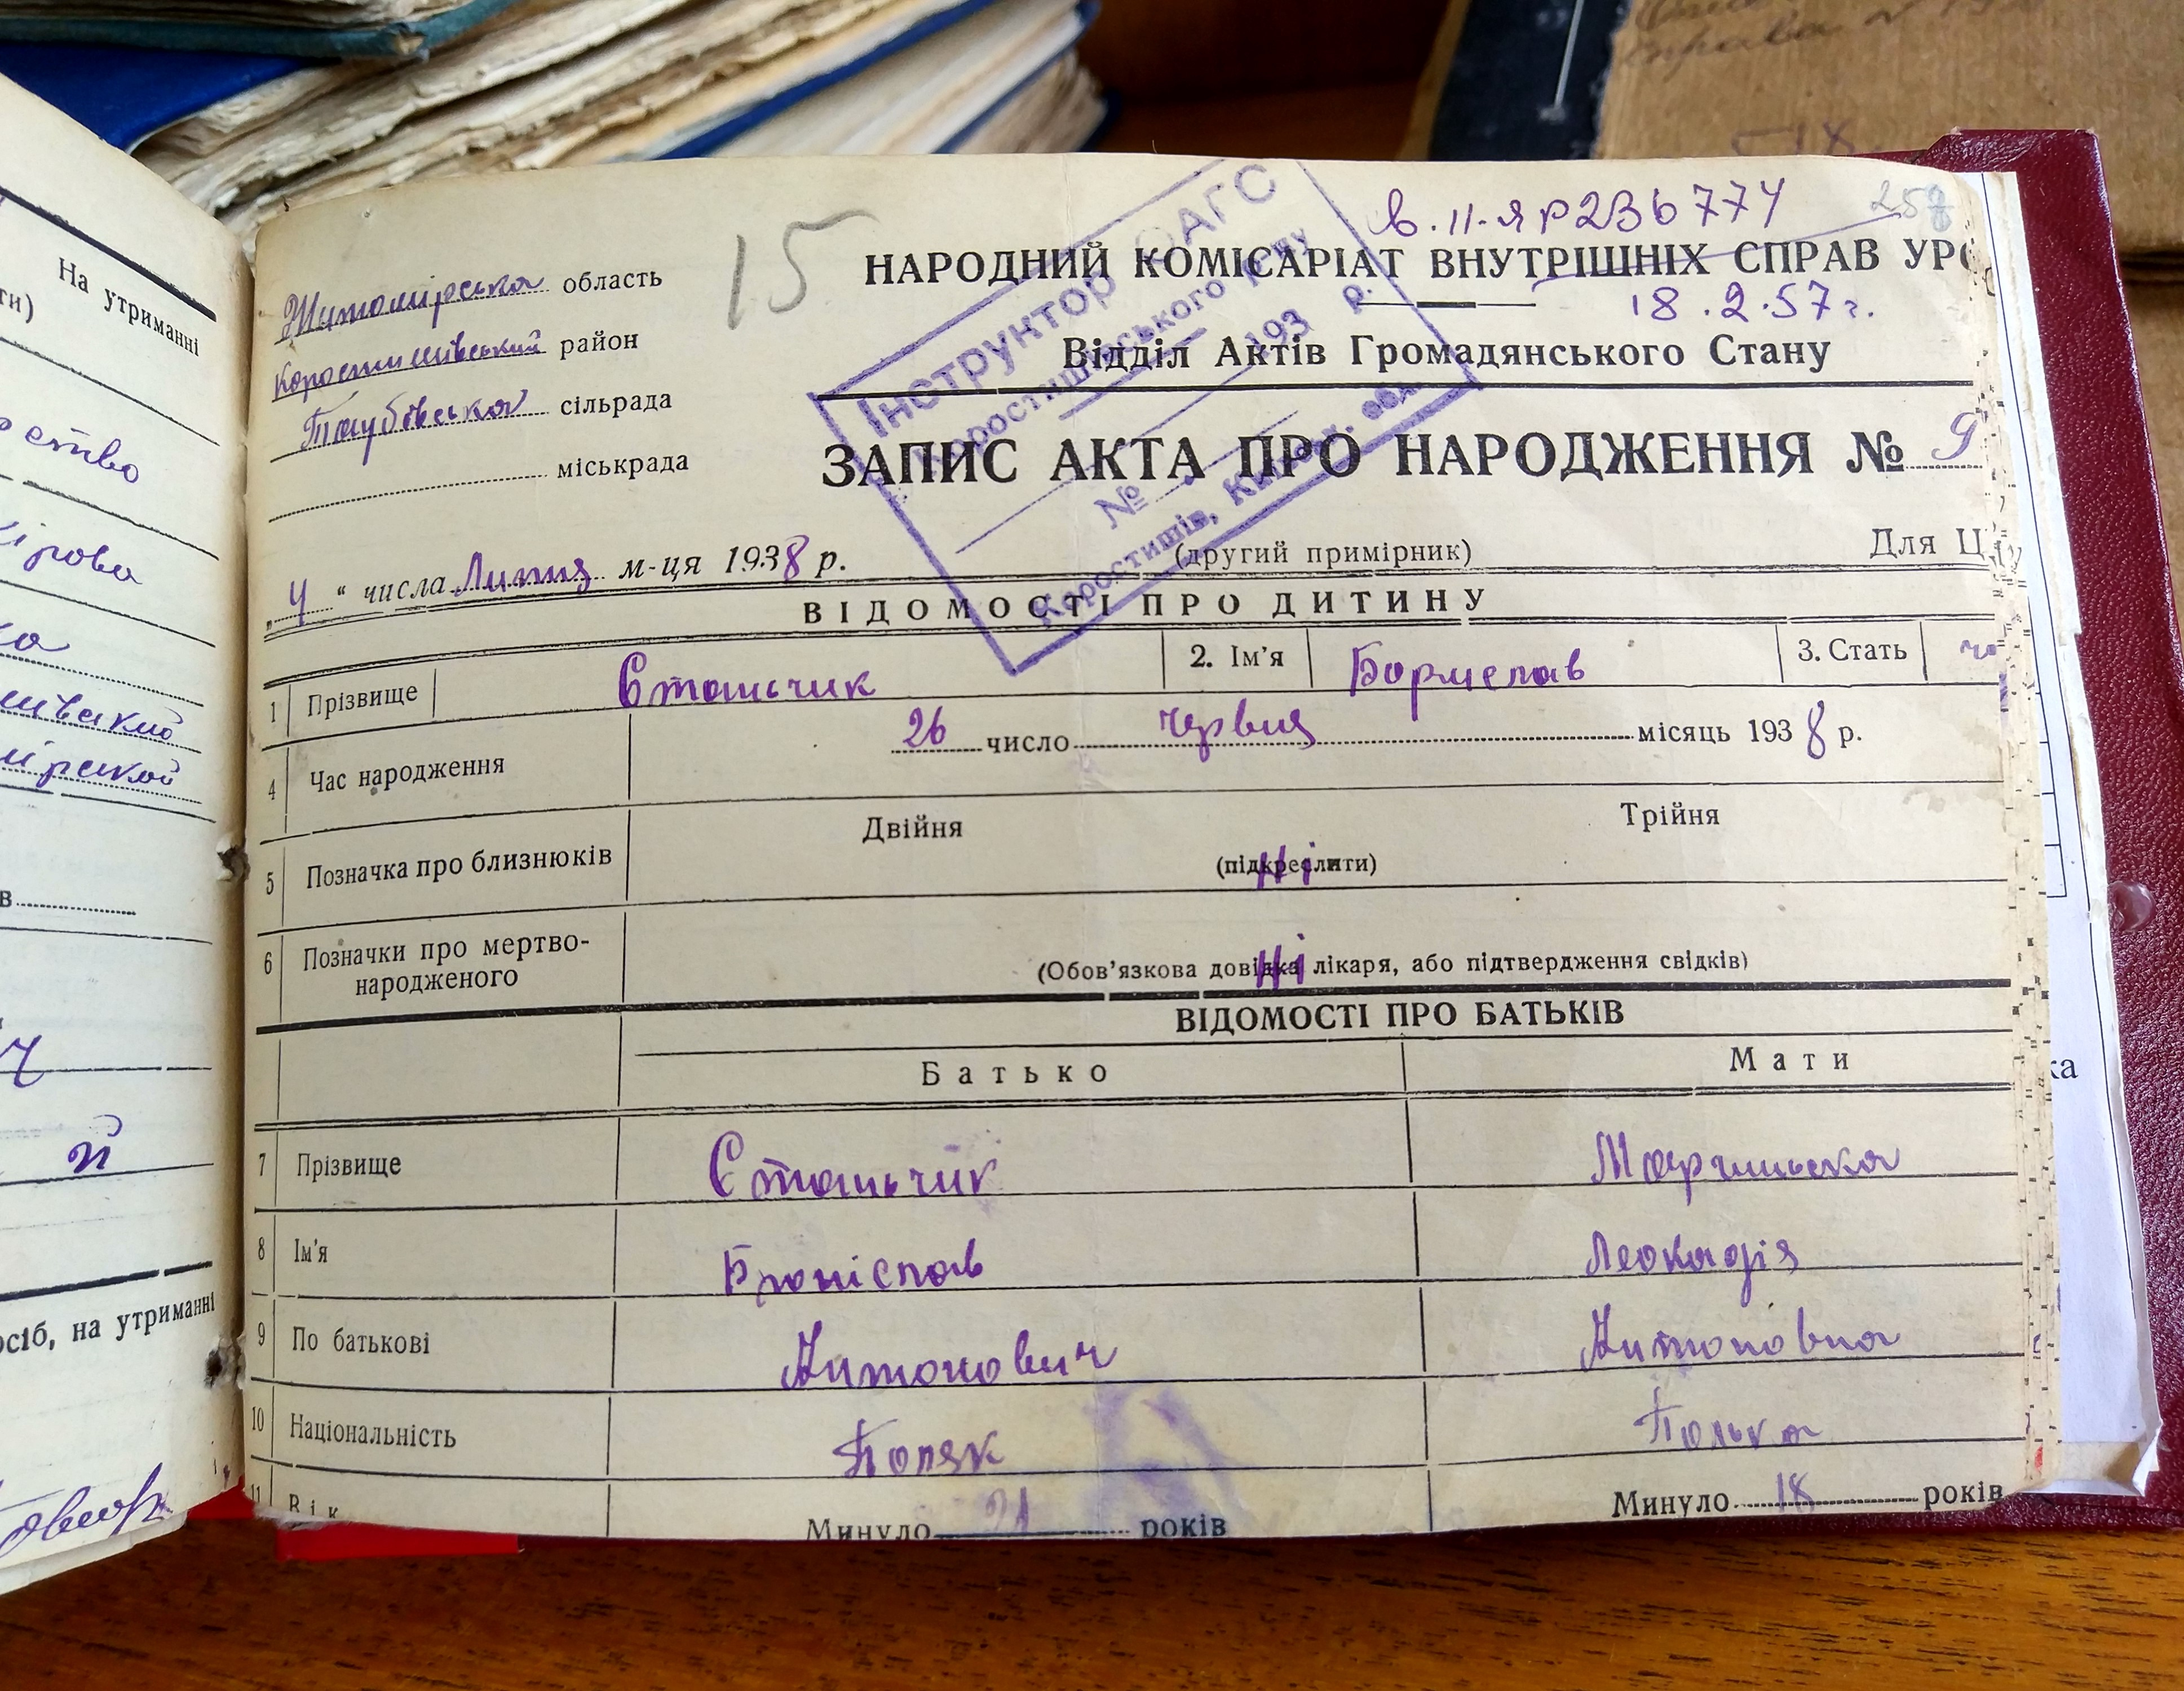 На утриманні
ти)
ірова
осіб, на утриманні
15
в. II-ЯР 236774
258
Житомірська область
Коростишівський район
сільрада
міськрада
НАРОДНИЙ КОМІСАРІАТ ВНУТРІШНІХ СПРАВ УРС
18.2.57г.
Відділ Актів Громадянського Стану
Інструктор ОАГС
Коростишівського
193 р.
№
Коростишів, Київськ. обл.
ЗАПИС АКТА ПРО НАРОДЖЕННЯ № 9
„4“ числа Липня м-ця 1938 р.
(другий примірник)
Для Ц
ВІДОМОСТІ ПРО ДИТИНУ
1 Прізвище Станьчик 2. Ім'я Борислав 3. Стать чо
4 Час народження 26 число червня місяць 1938 р.
5 Позначка про близнюків Двійня Трійня
(підкреслити) Ні
6 Позначки про мертво-
народженого
(Обов'язкова довідка лікаря, або підтвердження свідків) Ні
ВІДОМОСТІ ПРО БАТЬКІВ
Батько Мати
7 Прізвище Станьчик Марчинська
8 Ім'я Броніслав Леокадія
9 По батькові Антонович Антоновна
10 Національність Поляк Полька
11 Вік Минуло 21 років Минуло 18 років